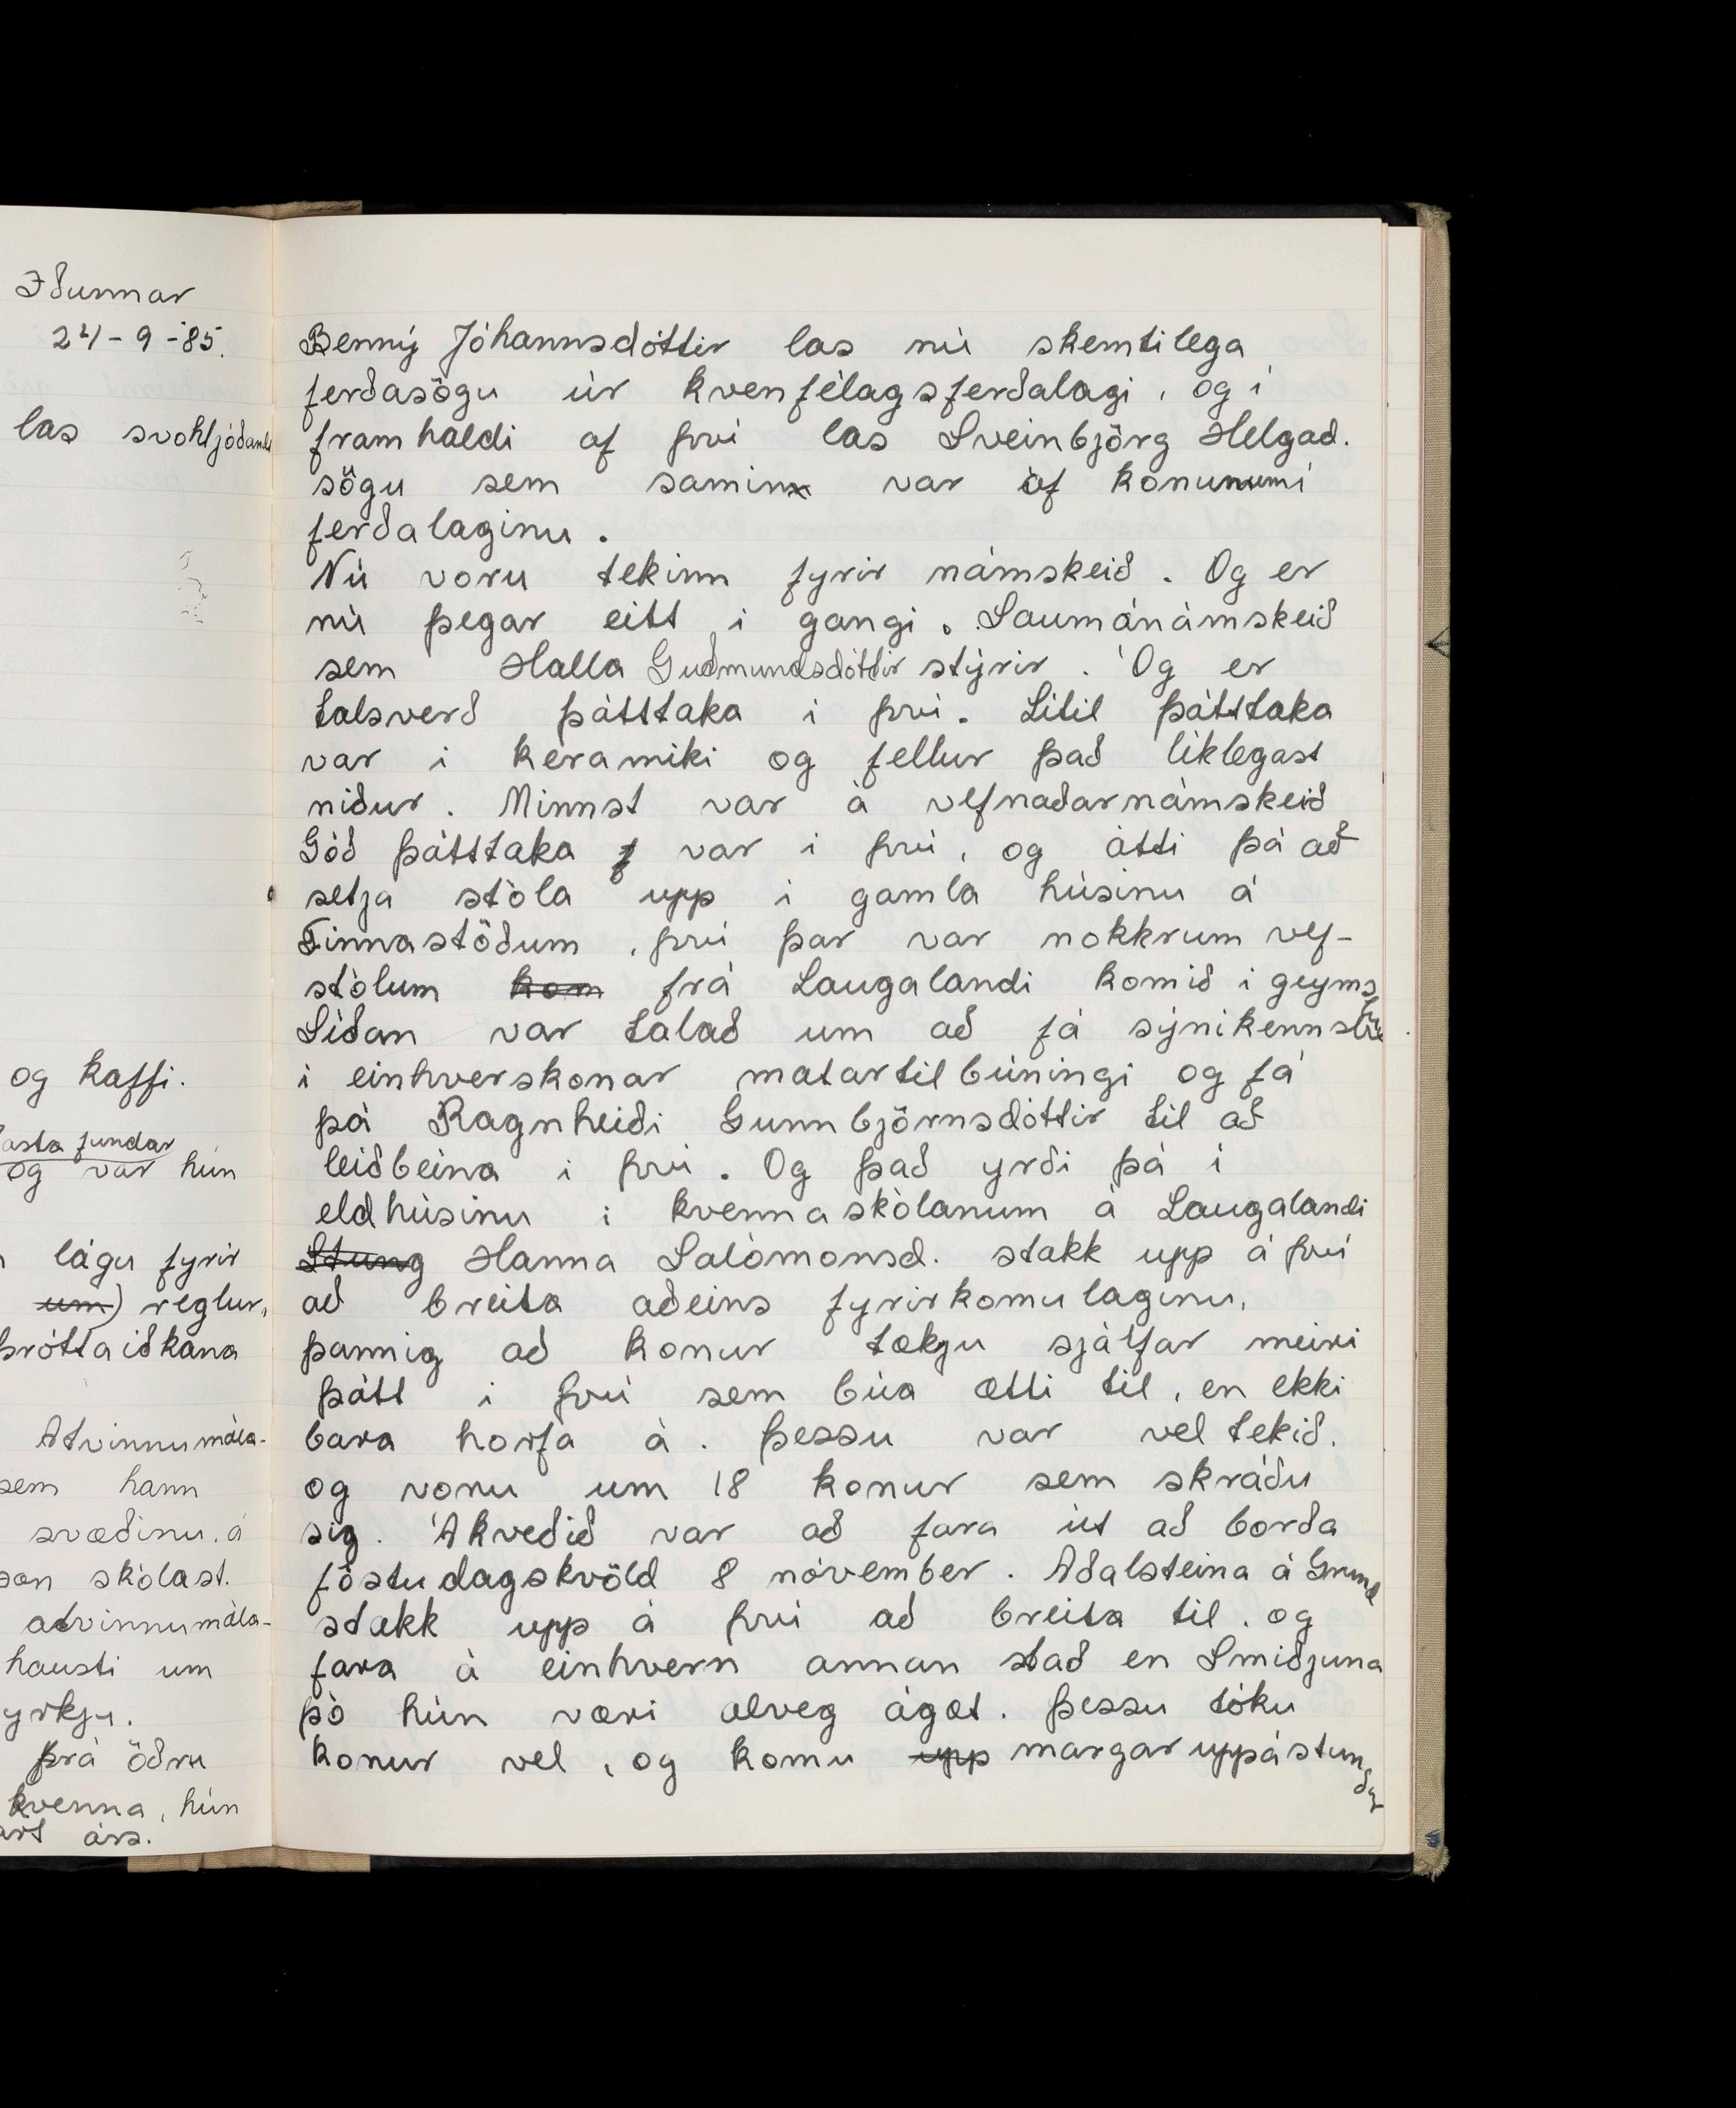 Iðunnar
24-9-85.
las svohljóðandi
og kaffi.
asta fundar
og var hún
lágu fyrir
um) reglur,
þróttaiðkana
Atvinnumála-
sem hann
svæðinu, á
son skólast.
atvinnumála-
hausti um
yrkju.
þrá öðru
kvenna, hún
árs.
Benný Jóhannsdóttir las nú skemtilega
ferðasögu úr kvenfélagsferðalagi, og í
framhaldi af því las Sveinbjörg Helgad.
sögu sem samin var af konunum í
ferðalaginu.
Nú voru tekinn fyrir námskeið. Og er
nú þegar eitt í gangi. Saumánámskeið
sem Halla Guðmundsdóttir stýrir. Og er
talsverð þátttaka í því. Lítil þátttaka
var í keramiki og fellur það líklegast
niður. Minnst var á vefnaðarnámskeið
Góð þátttaka var í því, og átti þá að
setja stóla upp í gamla húsinu á
Finnastöðum, því þar var nokkrum vef-
stólum kom frá Laugalandi komið í geymslu
Síðan var talað um að fá sýnikennslu
í einhverskonar matartilbúningi og fá
þá Ragnheiði Gunnbjörnsdóttir til að
leiðbeina í því. Og það yrði þá í
eldhúsinu í kvennaskólanum á Laugalandi
Stung Hanna Salómonsd. stakk upp á því
að breita aðeins fyrirkomulaginu,
þannig að konur tækju sjálfar meiri
þátt í því sem búa ætti til, en ekki
bara horfa á. Þessu var vel tekið.
og voru um 18 konur sem skráðu
sig. Ákveðið var að fara út að borða
föstudagskvöld 8 nóvember. Aðalsteina á Grund
stakk upp á því að breita til, og
fara á einhvern annan stað en Smiðjuna
þó hún væri alveg ágæt. Þessu tóku
konur vel, og komu upp margar uppástungur